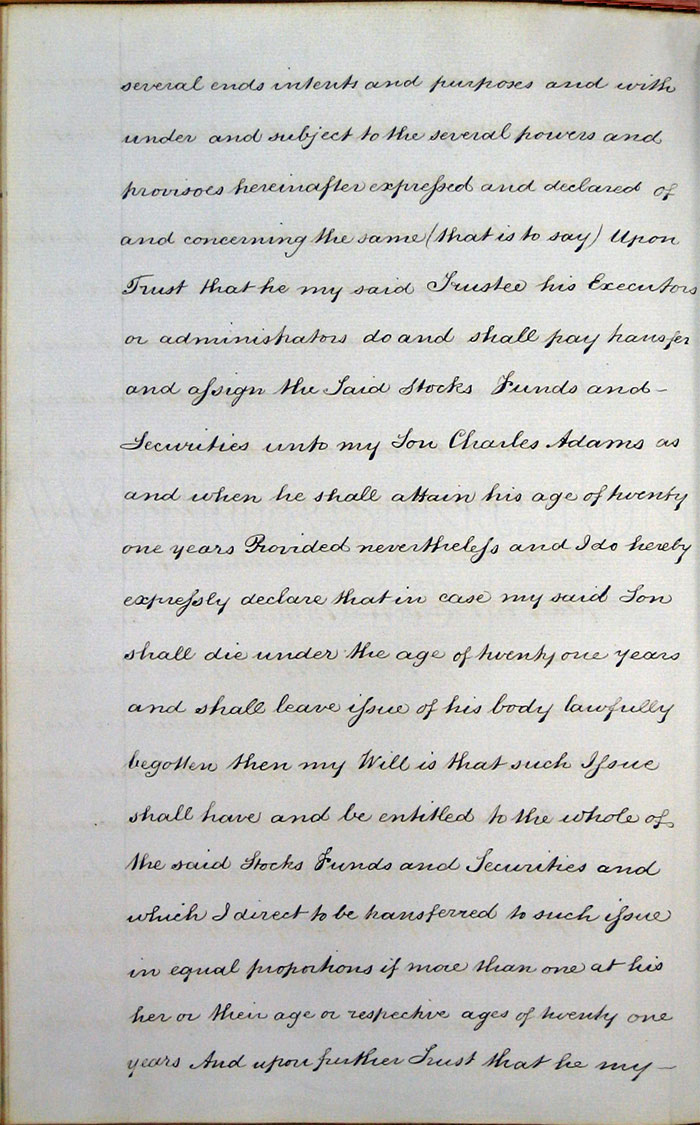 several ends intents and purposes and with
under and subject to the several powers and
provisoes hereinafter expreſsed and declared of
and concerning the same (that is to say) Upon
Trust that he my said Trustee his Executors
or administrators do and shall pay transfer
and aſsign the Said Stocks Funds and –
Securities unto my Son Charles Adams as
and when he shall attain his age of twenty
one years Provided nevertheleſs and I do hereby
expreſsly declare that in case my said Son
shall die under the age of twenty one years
and shall leave iſsue of his body lawfully
begotten then my Will is that such Iſsue
shall have and be entitled to the whole of
the said Stocks Funds and Securities and
which I direct to be transferred to such iſsue
in equal proportions if more than one at his
her or their age or respective ages of twenty one
years And upon further Trust that he my –